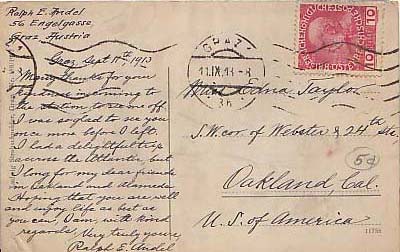 Ralph E. Andel
56 Engelgasse,
Graz, Austria
Graz, Sept 11th, 1913
Many thanks for your
kindness in coming to
the station to see me off.
I was so glad to see you
once more before I left.
I had a delightful trip
across the Atlantic, but
I long for my dear friends
in Oakland and Alameda.
Hoping that you are well
and enjoying life as best as
you can, I am with kind
regards, Very truly yours,
Ralph E. Andel
GRAZ 1
11.IX.13-8
Miss Dana Taylor
S.W. cor. of Webster & 24th Sts.
Oakland Cal.
U.S. of America
10
10
50
11756